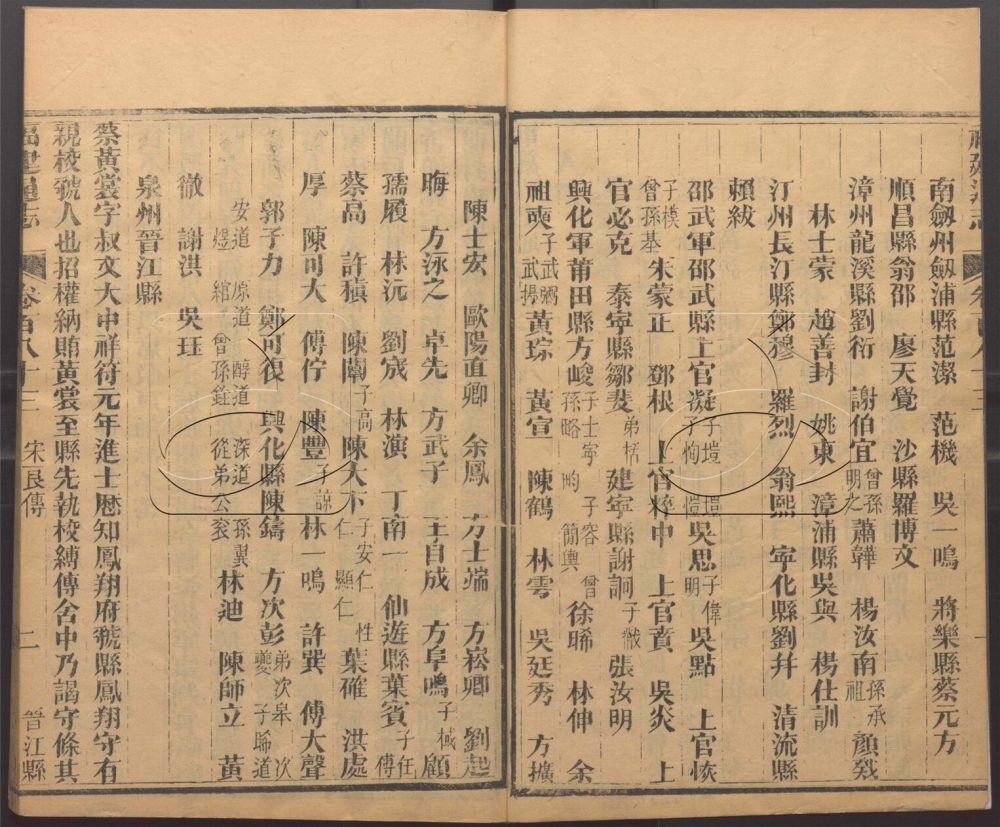 南劔州劔浦縣范潔 范機 吳一鳴 將樂縣蔡元方
順昌縣翁邵 廖天覺 沙縣羅博文
漳州龍溪縣劉衍 謝伯宜曾孫明之蕭韡 楊汝南孫承祖顏
林士蒙 趙善封 姚東 漳浦縣吳與 楊仕訓
汀州長汀縣鄭穆 羅烈 翁熙 寧化縣劉幷 清流縣
賴紱
邵武軍邵武縣上官凝子恂 吳思子偉明吳點 上官恢
子模曾孫基朱蒙正 鄧根 上官粹中 上官賁 吳炎 上
官必克 泰寧縣鄒斐弟栝 建寧縣謝詗 張汝明
興化軍莆田縣方峻子士寧孫略 子容曾 徐晞 林伸 余
祖奭子武弼 黃琮 黃宣 陳鶴 林雲 吳廷秀 方擴
陳士宏 歐陽直卿 余鳳 方士端 方崧卿 劉起
晦 方泳之 卓先 方武子 王自成 方阜鳴子棫顧
孺履 林沅 劉宬 林湞 丁南一 仙遊縣葉賓子任傅
蔡高 許稹 陳闡子高陳大卞子安仁 性仁 顯仁葉確 洪處
厚 陳可大 傅佇 陳豐子諒林一鳴 許巽 傅大聲
郭子力 鄭可復 興化縣陳鑄 方次彭弟次皋 次夔 子晞道
安道 原道 醇道 深道 孫翼 曾孫銓 從弟公袞林迪 陳師立 黃
徹 謝洪 吳珏
泉州晉江縣
蔡黃裳字叔文大中祥符元年進士歷知鳳翔府虢縣鳳翔守有
親校虢人也招權納賄黃裳至縣先執校縛傳舍中乃謁守條其
福建通志 卷百八十三 宋良傳 二 晉江縣